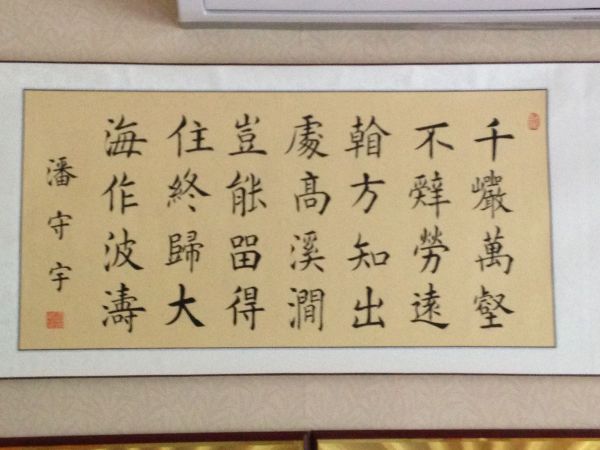 千巖萬壑
不辭勞遠
看方知出
處高溪澗
豈能留得
住終歸大
海作波濤
潘守宇